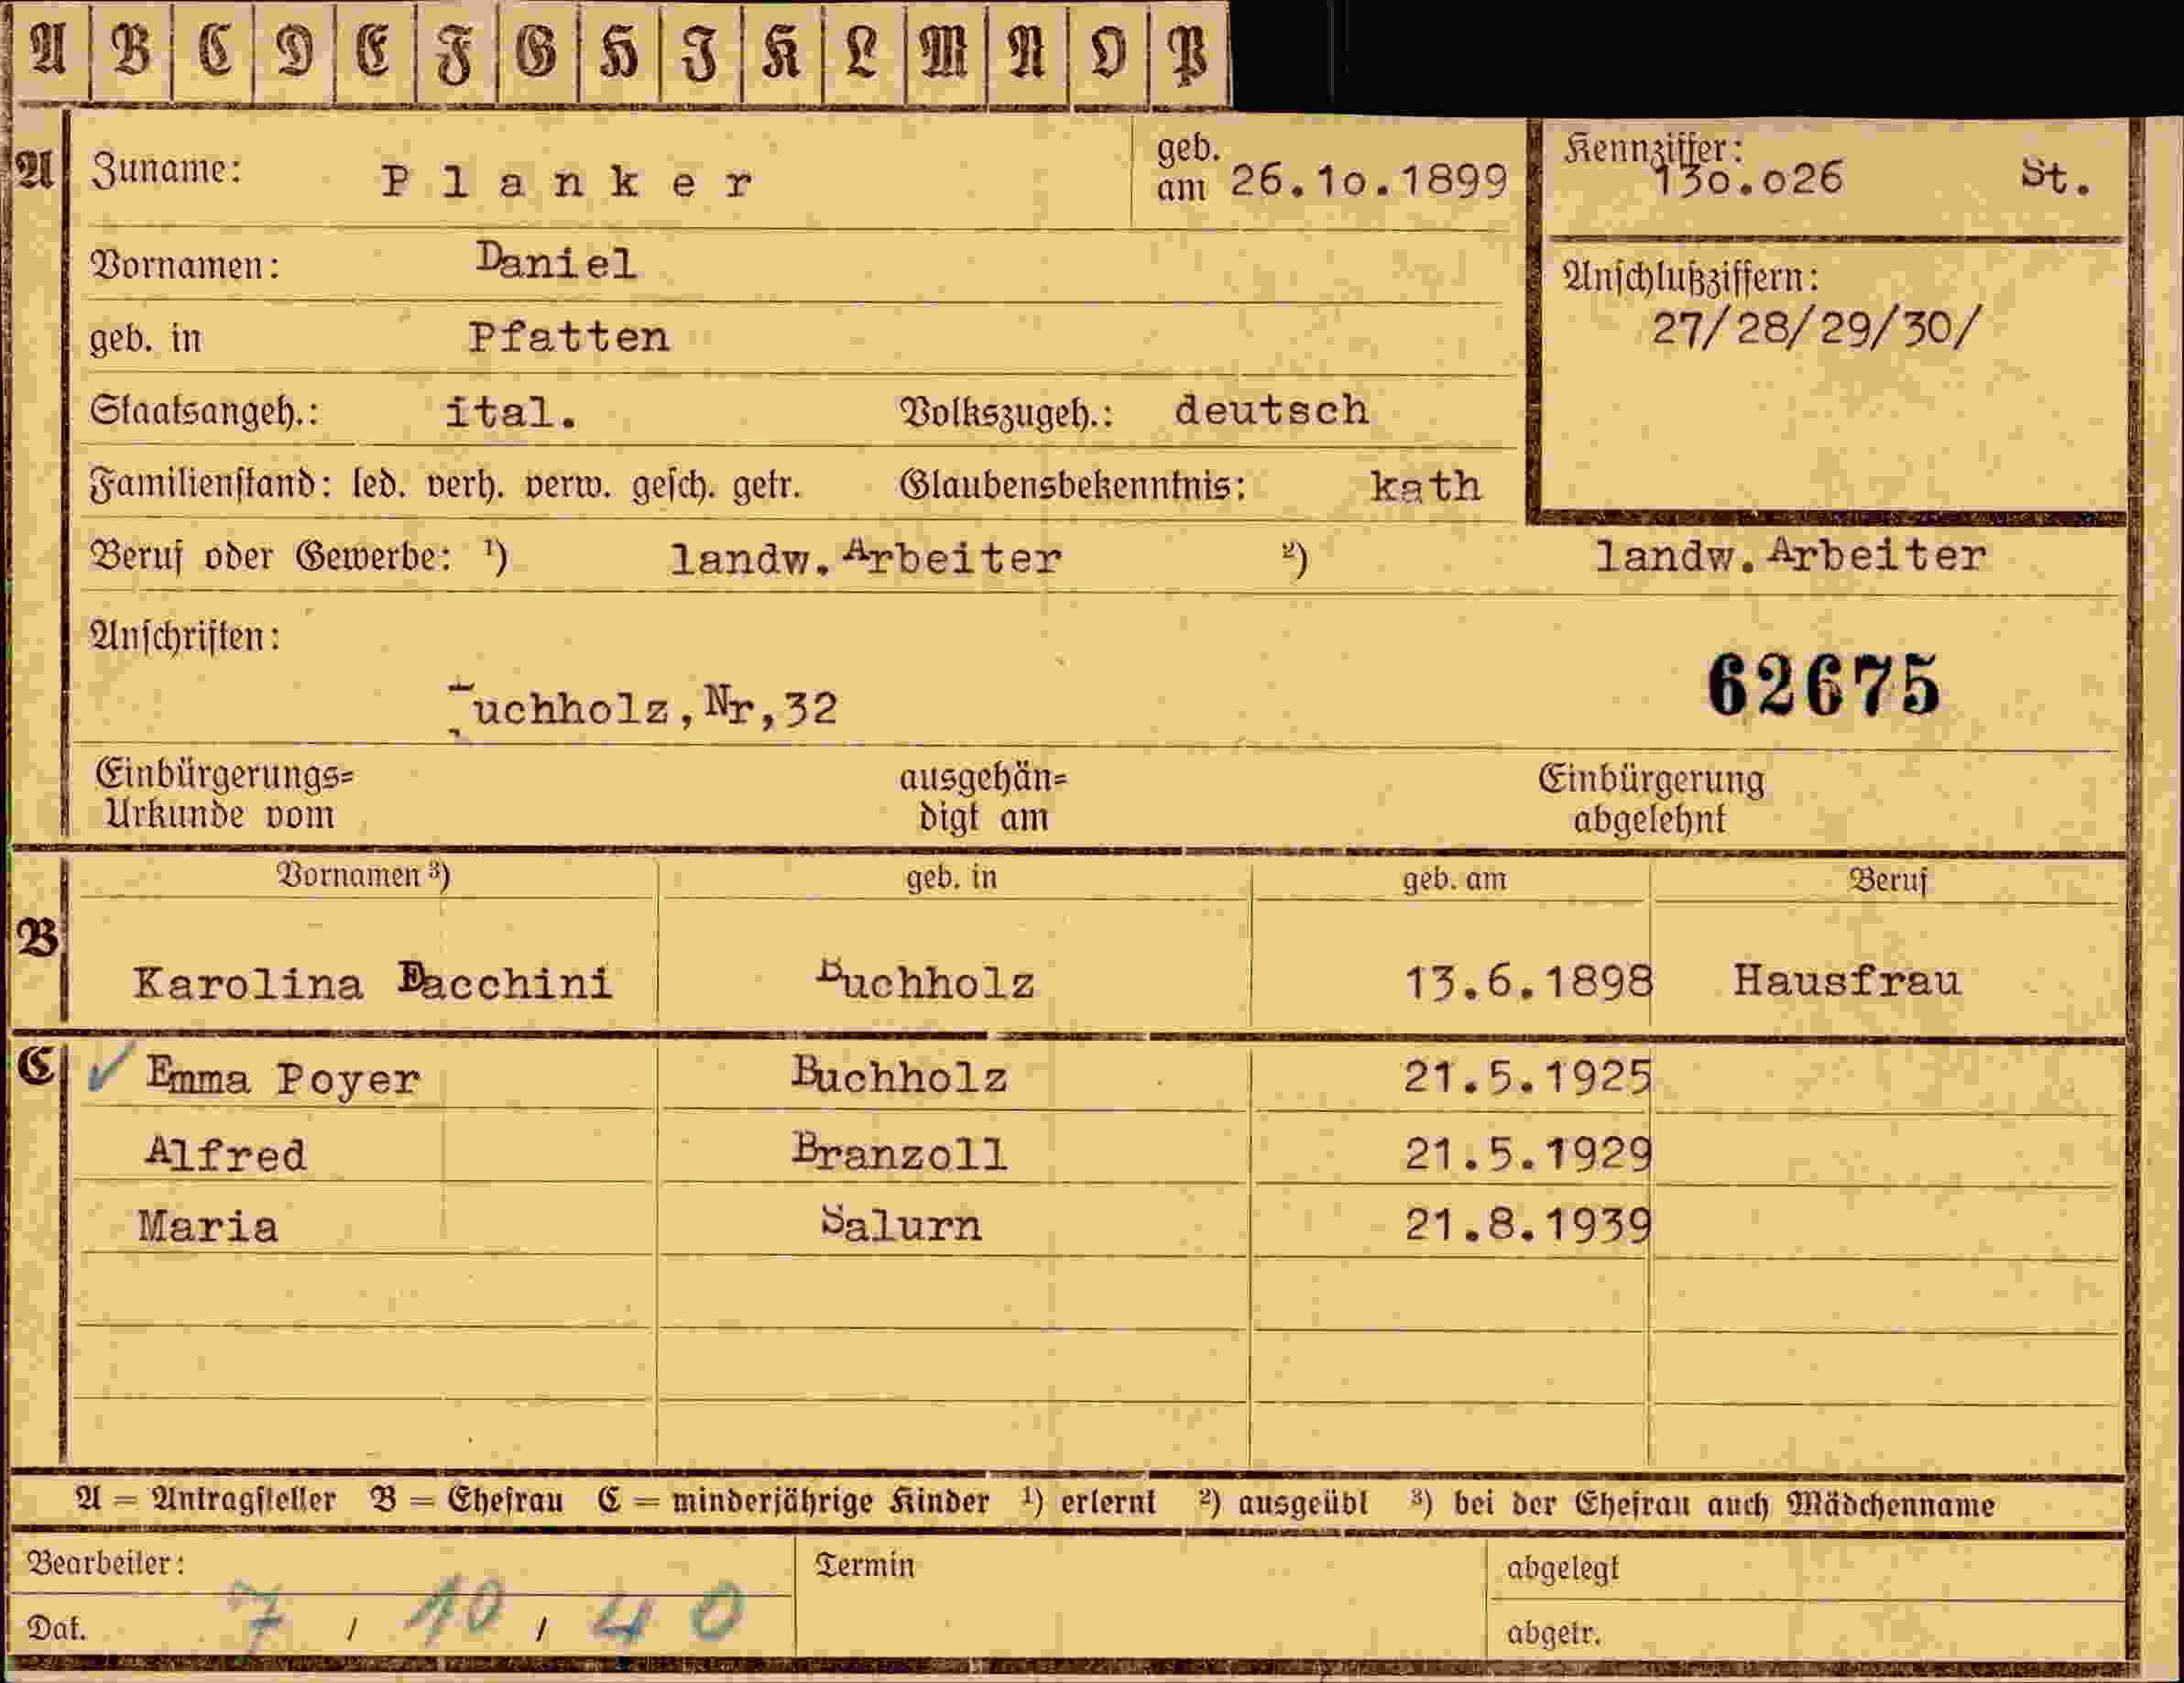 A B C D E F G H I K L M N O P
A Zuname: Planker geb. am 26.10.1899 Kennziffer: 130.026 St.
Vornamen: Daniel
Anschlußziffern:
27/28/29/30/
geb. in Pfatten
Staatsangeh.: ital. Volkszugeh.: deutsch
Familienstand: led. verh. verw. gesch. getr. Glaubensbekenntnis: kath
Beruf oder Gewerbe: ¹) landw.Arbeiter ²) landw.Arbeiter
Anschriften:
62675
Buchholz,Nr,32
Einbürgerungs=
Urkunde vom
ausgehän=
digt am
Einbürgerung
abgelehnt
Vornamen ³) geb. in geb. am Beruf
B Karolina Buchholz 13.6.1898 Hausfrau
C ✓ Emma Poyer Buchholz 21.5.1925
Alfred Branzoll 21.5.1929
Maria Salurn 21.8.1939
A = Antragsteller B = Ehefrau C = minderjährige Kinder ¹) erlernt ²) ausgeübt ³) bei der Ehefrau auch Mädchenname
Bearbeiter: Termin abgelegt
Dat. 7 / 10 / 40 abgetr.